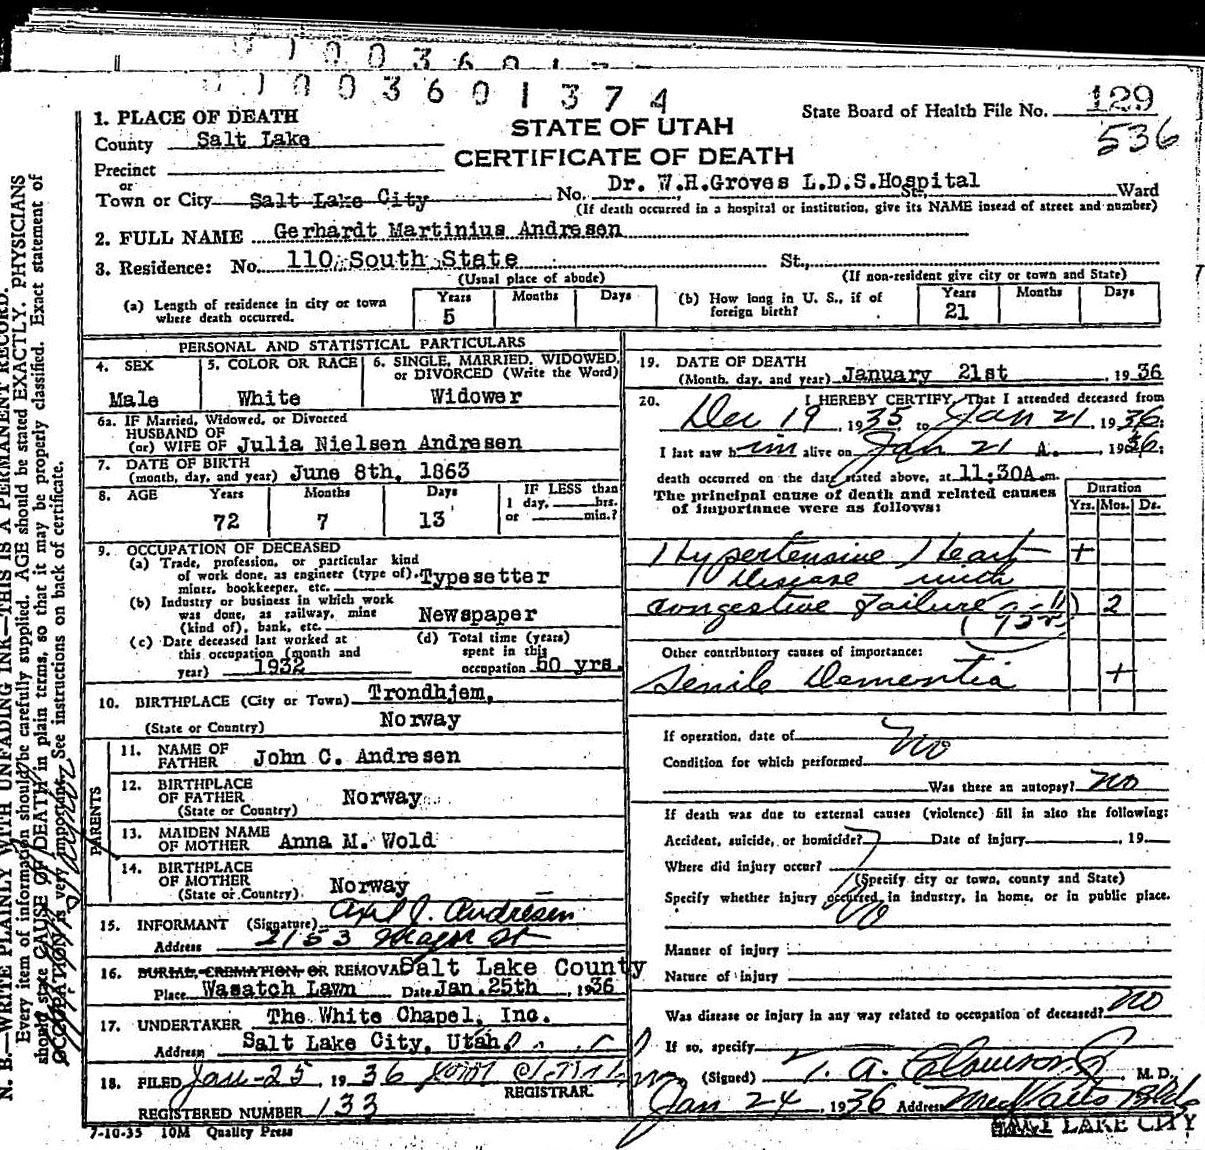 1003601
1003601374
1. PLACE OF DEATH
State Board of Health File No. 129
536
STATE OF UTAH
CERTIFICATE OF DEATH
County Salt Lake
Precinct
or
Town or City Salt Lake City No. Dr. W.H.Groves L.D.S.Hospital St. Ward
(If death occurred in a hospital or institution, give its NAME insead of street and number)
2. FULL NAME Gerhardt Martinius Andresen
3. Residence: No. 110 South State St.,
(Usual place of abode) (If non-resident give city or town and State)
(a) Length of residence in city or town where death occurred. Years 5 Months Days
(b) How long in U. S., if of foreign birth? Years 21 Months Days
PERSONAL AND STATISTICAL PARTICULARS
4. SEX Male
5. COLOR OR RACE White
6. SINGLE, MARRIED, WIDOWED, or DIVORCED (Write the Word) Widower
6a. IF Married, Widowed, or Divorced
HUSBAND OF
(or) WIFE OF Julia Nielsen Andresen
7. DATE OF BIRTH
(month, day, and year) June 8th, 1863
8. AGE Years 72 Months 7 Days 13
IF LESS than
1 day, hrs.
or min.?
9. OCCUPATION OF DECEASED
(a) Trade, profession, or particular kind
of work done, as engineer (type of), Typesetter
miner, bookkeeper, etc.
(b) Industry or business in which work
was done, as railway, mine Newspaper
(kind of), bank, etc.
(c) Date deceased last worked at
this occupation (month and
year) 1932
(d) Total time (years)
spent in this
occupation 50 yrs.
10. BIRTHPLACE (City or Town) Trondhjem,
(State or Country) Norway
PARENTS
11. NAME OF FATHER John C. Andresen
12. BIRTHPLACE OF FATHER Norway
(State or Country)
13. MAIDEN NAME OF MOTHER Anna M. Wold
14. BIRTHPLACE OF MOTHER
(State or Country) Norway
15. INFORMANT (Signature) Axel J. Andresen
Address 2153 St
16. BURIAL, CREMATION, OR REMOVAL Salt Lake County
Place Wasatch Lawn Date Jan. 25th, 1936
17. UNDERTAKER The White Chapel, Inc.
Address Salt Lake City, Utah
18. FILED Jan-25, 1936
REGISTRAR
REGISTERED NUMBER 133
7-10-35 10M Quality Press
19. DATE OF DEATH
(Month, day, and year) January 21st, 1936
20. I HEREBY CERTIFY, That I attended deceased from
Dec 19, 1935 to Jan 21, 1936;
I last saw him alive on Jan 21 A., 1936;
death occurred on the date stated above, at 11:30A m.
The principal cause of death and related causes
of importance were as follows:
Duration
Yrs. Mos. Ds.
Hypertensive Heart +
Disease with
congestive failure 2
Other contributory causes of importance:
Senile Dementia +
If operation, date of No
Condition for which performed
Was there an autopsy? No
If death was due to external causes (violence) fill in also the following:
Accident, suicide, or homicide? Date of injury , 19
Where did injury occur?
(Specify city or town, county and State)
Specify whether injury occurred in industry, in home, or in public place.
No
Manner of injury
Nature of injury
Was disease or injury in any way related to occupation of deceased? No
If so, specify
(Signed) T. A. Clawson Jr M. D.
Jan 24, 1936 Address
SALT LAKE CITY
N. B.—WRITE PLAINLY WITH UNFADING INK—THIS IS A PERMANENT RECORD.
Every item of information should be carefully supplied. AGE should be stated EXACTLY. PHYSICIANS
should state CAUSE OF DEATH in plain terms, so that it may be properly classified. Exact statement of
OCCUPATION is very important. See instructions on back of certificate.